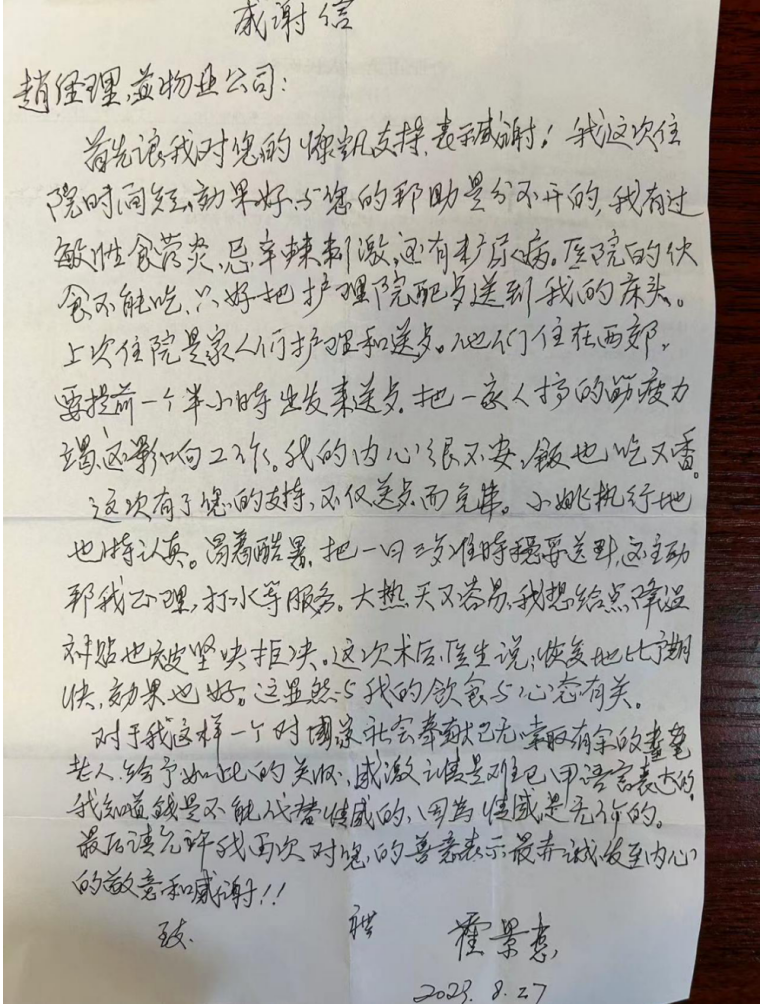 感谢信
赵经理並物业公司：
首先让我对您的慷慨支持表示感谢！我这次住
院时间短、效果好与您的帮助是分不开的，我有过
敏性食管炎，忌辛辣刺激，还有糖尿病。医院的伙
食不能吃，只好把护理院配点送到我的床头。
上次住院是家人们护理和送点。他们住在西郊，
要提前一个半小时出发来送点，把一家人搞的筋疲力
竭，还影响工作。我的内心很不安，饭也吃不香。
这次有了您的支持，不仅送点而免费。小姚执行地
也特认真。冒着酷暑，把一日三歺准时稳妥送到，还主动
帮我办理，打水等服务。大热天不容易，我想给点降温
补贴也被坚决拒决。这次术后，医生说：恢复地比预期
快，效果也好。这显然与我的饮食与心态有关。
对于我这样一个对国家社会奉献已无索取有余的耄耋
老人，给予如此的关照，感激之情是难已用语言表达的。
我知道钱是不能代替情感的，因為情感是无价的。
最后请允许我再次对您的善意表示最赤诚发至内心
的敬意和感谢!!
致 礼
霍景惠
8.27